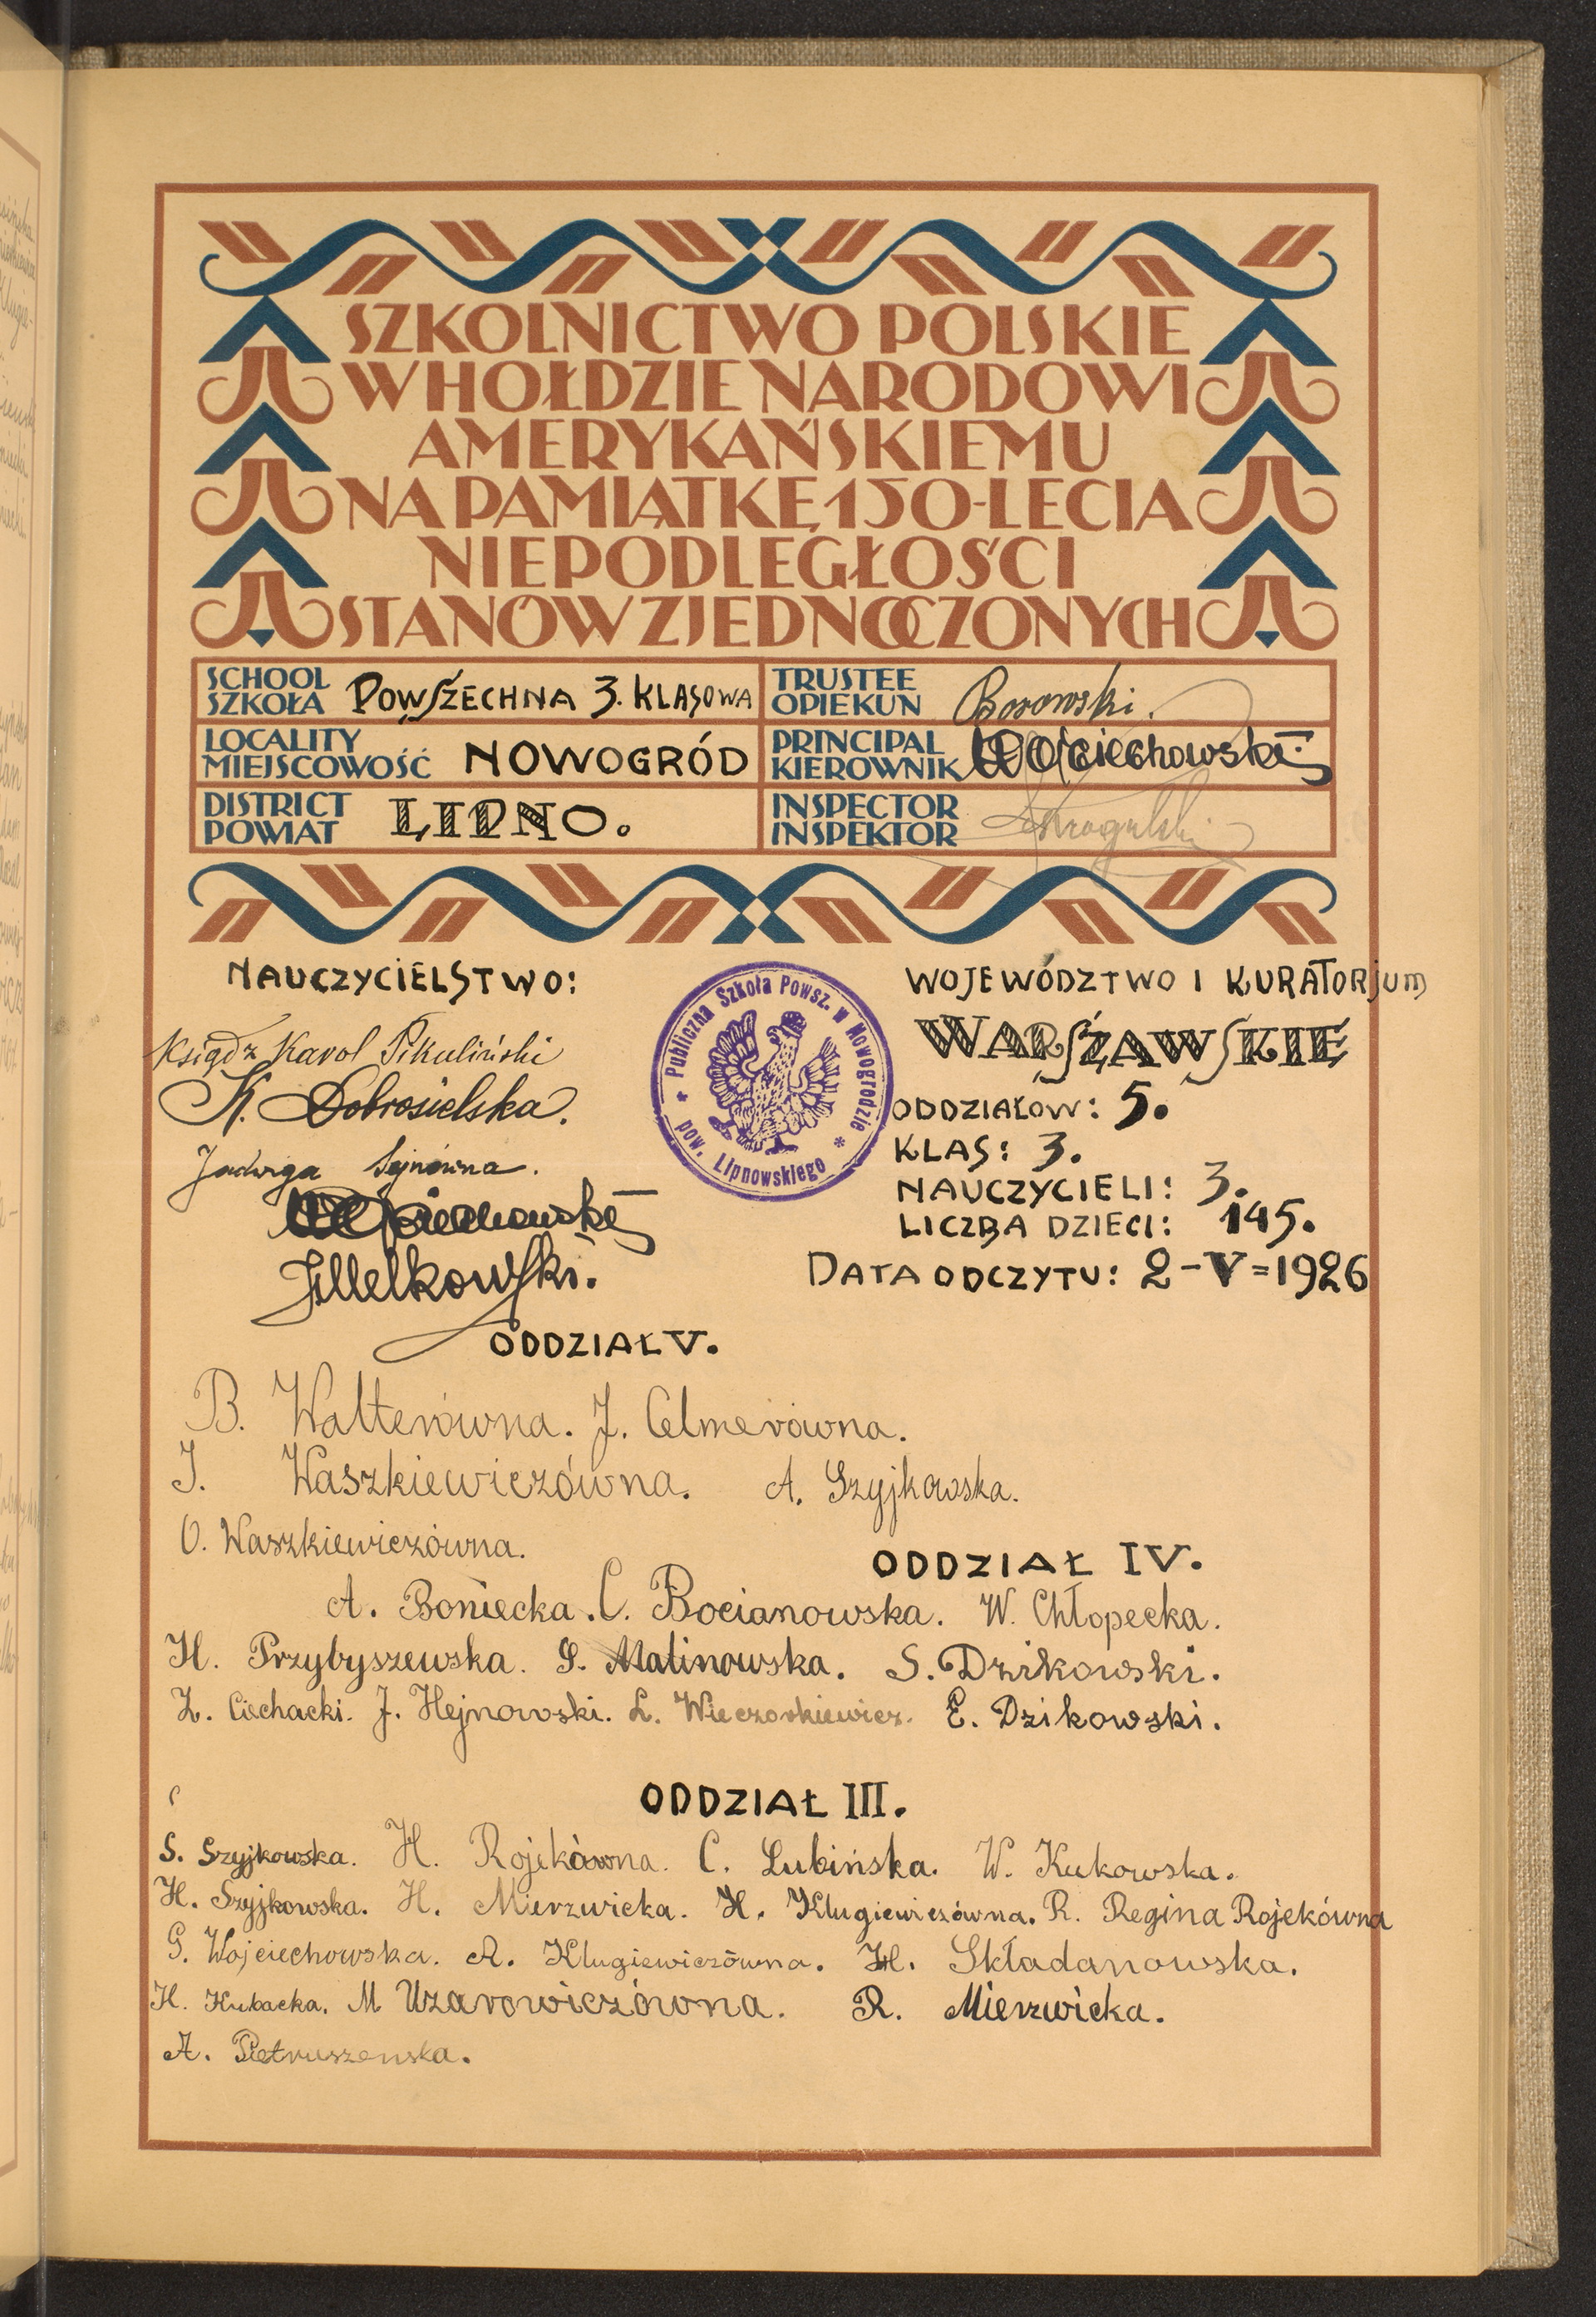 SZKOLNICTWO POLSKIE
W HOŁDZIE NARODOWI
AMERYKAŃSKIEMU
NA PAMIĄTKĘ 150-LECIA
NIEPODLEGŁOŚCI
STANÓW ZJEDNOCZONYCH
SCHOOL
SZKOŁA POWSZECHNA 3. KLASOWA
TRUSTEE
OPIEKUN Borowski.
LOCALITY
MIEJSCOWOŚĆ NOWOGRÓD
PRINCIPAL
KIEROWNIK Wojciechowski
DISTRICT
POWIAT LIPNO.
INSPECTOR
INSPEKTOR
NAUCZYCIELSTWO:
Ksiądz Karol Pikuliński
K. Dobrosielska.
Jadwiga Sejnówna.
Wojciechowski
JMelkowski.
* Publiczna Szkoła Powsz. w Nowogrodzie *
pow. Lipnowskiego
WOJEWÓDZTWO I KURATORJUM
WARSZAWSKIE
ODDZIAŁÓW: 5.
KLAS: 3.
NAUCZYCIELI: 3.
LICZBA DZIECI: 145.
DATA ODCZYTU: 2-V=1926
ODDZIAŁ V.
B. Walterówna. J. Celmerówna.
J. Waszkiewiczówna. A. Szyjkowska.
O. Waszkiewiczówna.
ODDZIAŁ IV.
A. Boniecka. C. Bocianowska. W. Chłopecka.
H. Przybyszewska. G. Malinowska. S. Dzikowski.
Z. Ciechacki. J. Hejnowski. L. Wieczorkiewicz. E. Dzikowski.
ODDZIAŁ III.
S. Szyjkowska. H. Rojekówna. C. Lubińska. W. Kukowska.
H. Szyjkowska. H. Mierzwicka. H. Klugiewiczówna. R. Regina Rojekówna
G. Wojciechowska. A. Klugiewiczówna. H. Składanowska.
H. Kubacka. M Uzarowiczówna. R. Mierzwicka.
A. Pietruszewska.